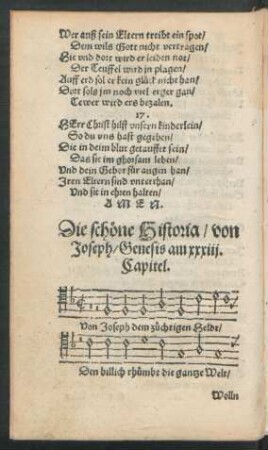 Wer auß sein Eltern treibt ein spot/
Dem wils Gott nicht vertragen/
Hie vnd dort wird er leiden not/
Der Teuffel wird in plagen/
Auff erd sol er kein glück nicht han/
Dort sols jm noch viel erger gan/
Tewer wird ers bezalen.
17.
HErr Christ hilff vnsern kinderlein/
So du vns hast gegeben/
Die in deim blut getauffet sein/
Das sie im ghorsam leben/
Vnd dein Gebot für augen han/
Jren Eltern sind vnterthan/
Vnd sie in ehren halten/
A M E N.
Die schöne Historia/ von
Joseph/ Genesis am xxxiij.
Capitel.
Von Joseph dem züchtigen Heldt/
Den billich rhümbt die gantze Welt/
Wolln